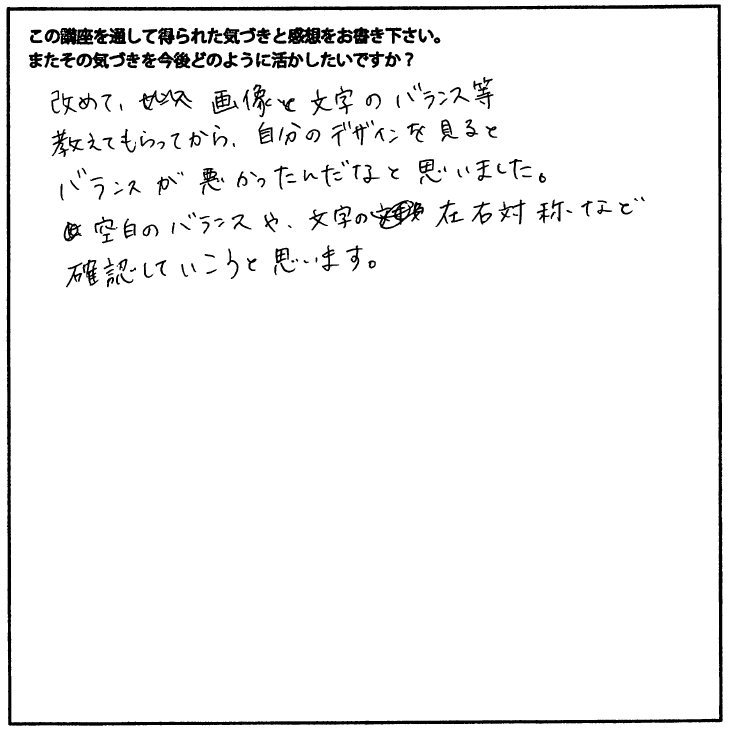 この講座を通して得られた気づきと感想をお書き下さい。
またその気づきを今後どのように活かしたいですか？
改めて、画像と文字のバランス等
教えてもらってから、自分のデザインを見ると
バランスが悪かったんだなと思いました。
空白のバランスや、文字の左右対称など
確認していこうと思います。